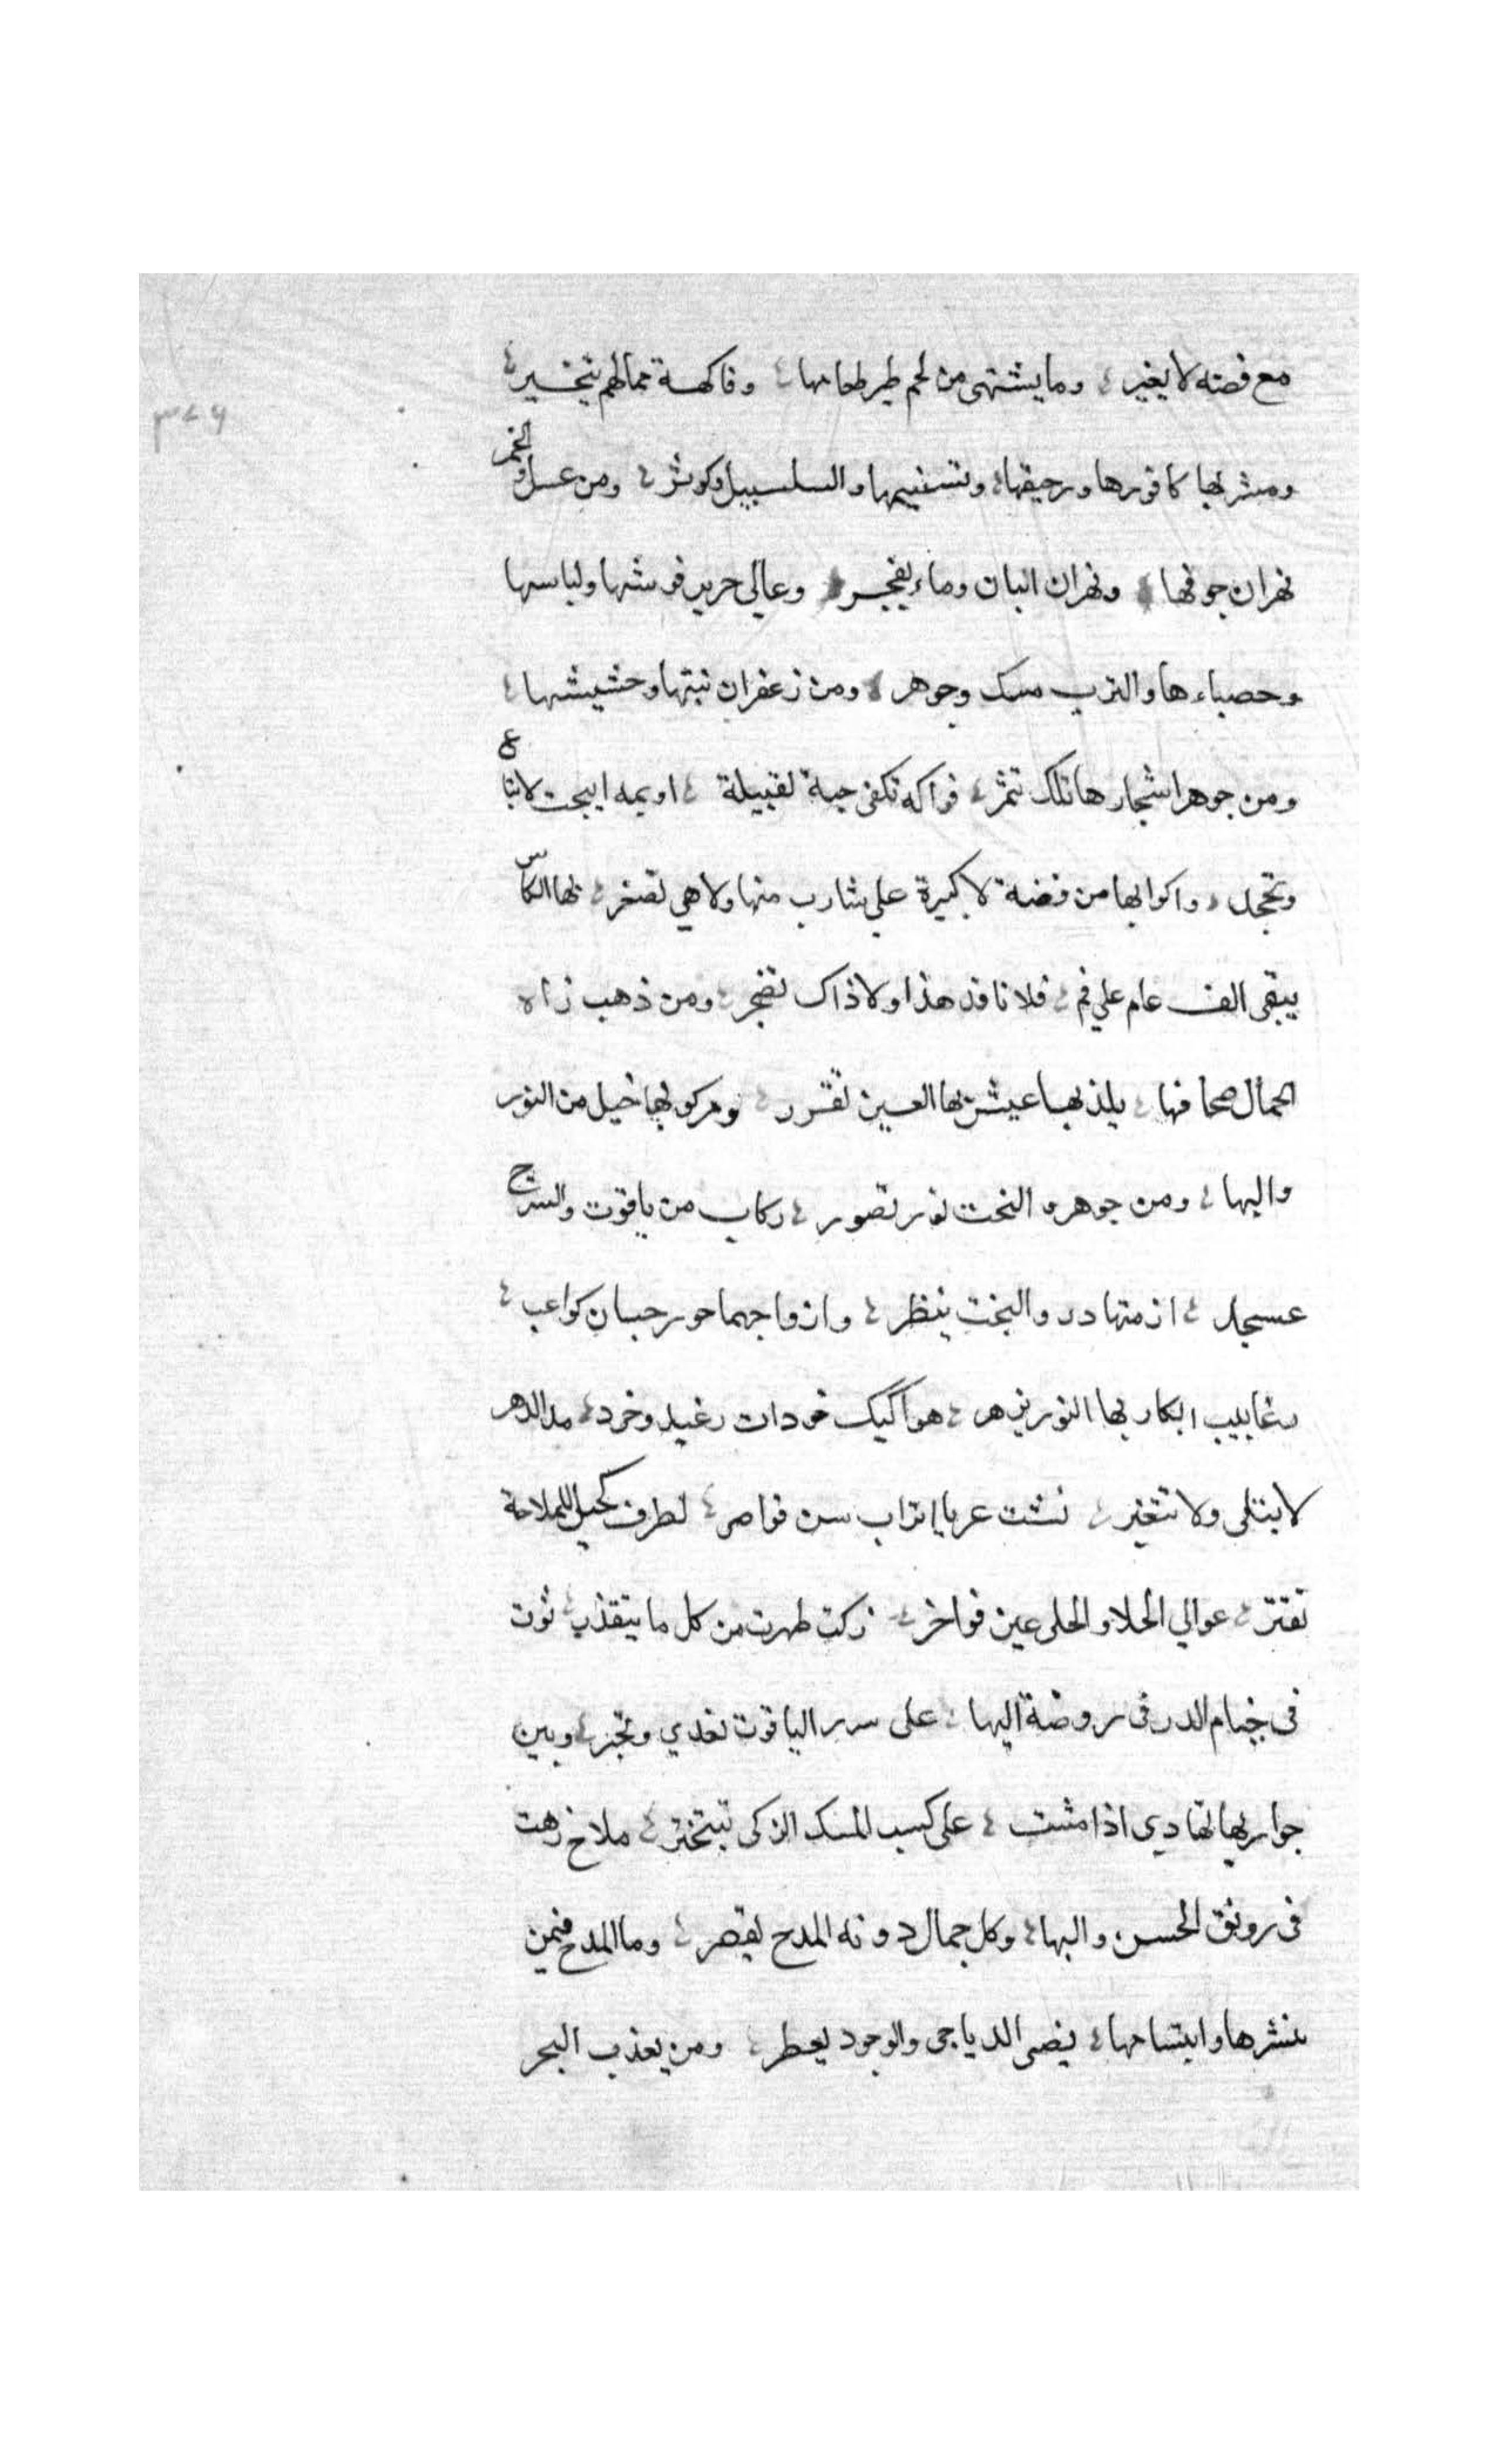 مع فضته لا يغير وما يشتهى من لحم طير طعامها وفاكهة مما لهم يتخير
ومشربها كافورها ورحيقها وتسنيمها والسلسبيل وكوثر ومن عسل والخمر
نهران جوفها ونهران البان وماء يفجر وعالى حرير فرشها ولباسها
وحصباءها والترب مسك وجوهر ومن زعفران نبتها وحشيشها
ومن جوهر اشجارها تلك تثمر فواكه تكفى حبة لقبيلة ابيحت لا تباع
واكوابها من فضة لا كبيرة على شارب منها ولا هي تصغر بها الكاس
يبقى الف عام على فم فلا نافد هذا ولا ذاك تضجر ومن ذهب زاه
الجمال صحافها يلذ بها عيش بها العين تقرر ومركوبها خيل من النور
والبها ومن جوهر والنجب نور تصور ركاب من ياقوت والسرج
عسجد ازمتها در والبخت ينظر وازواجها حور حسان كواعب
رعابيب ابكار بها النور يزهر خودات رغيد وخرد مدا الدهر
لا يبتلى ولا تتغير نشت عربا اتراب سن قواصر لطرف كحيل للملاحة
تفتر عوالي الحلا والحلى عين فواخر زكت طهرت من كل ما يتقذر ثوت
فى خيام الدر فى روضة البها على سرر الياقوت تغدي وتجر وبين
جواريها تهادي اذا مشت على كسب المسك الزكى تبتختر ملاح زهت
فى رونق الحسن والبها وكل جمال دونه المدح يقصر وما المدح فيمن
نشرها وابتسامها يضى الدياجى والوجود يعطر ومن يعذب البحر